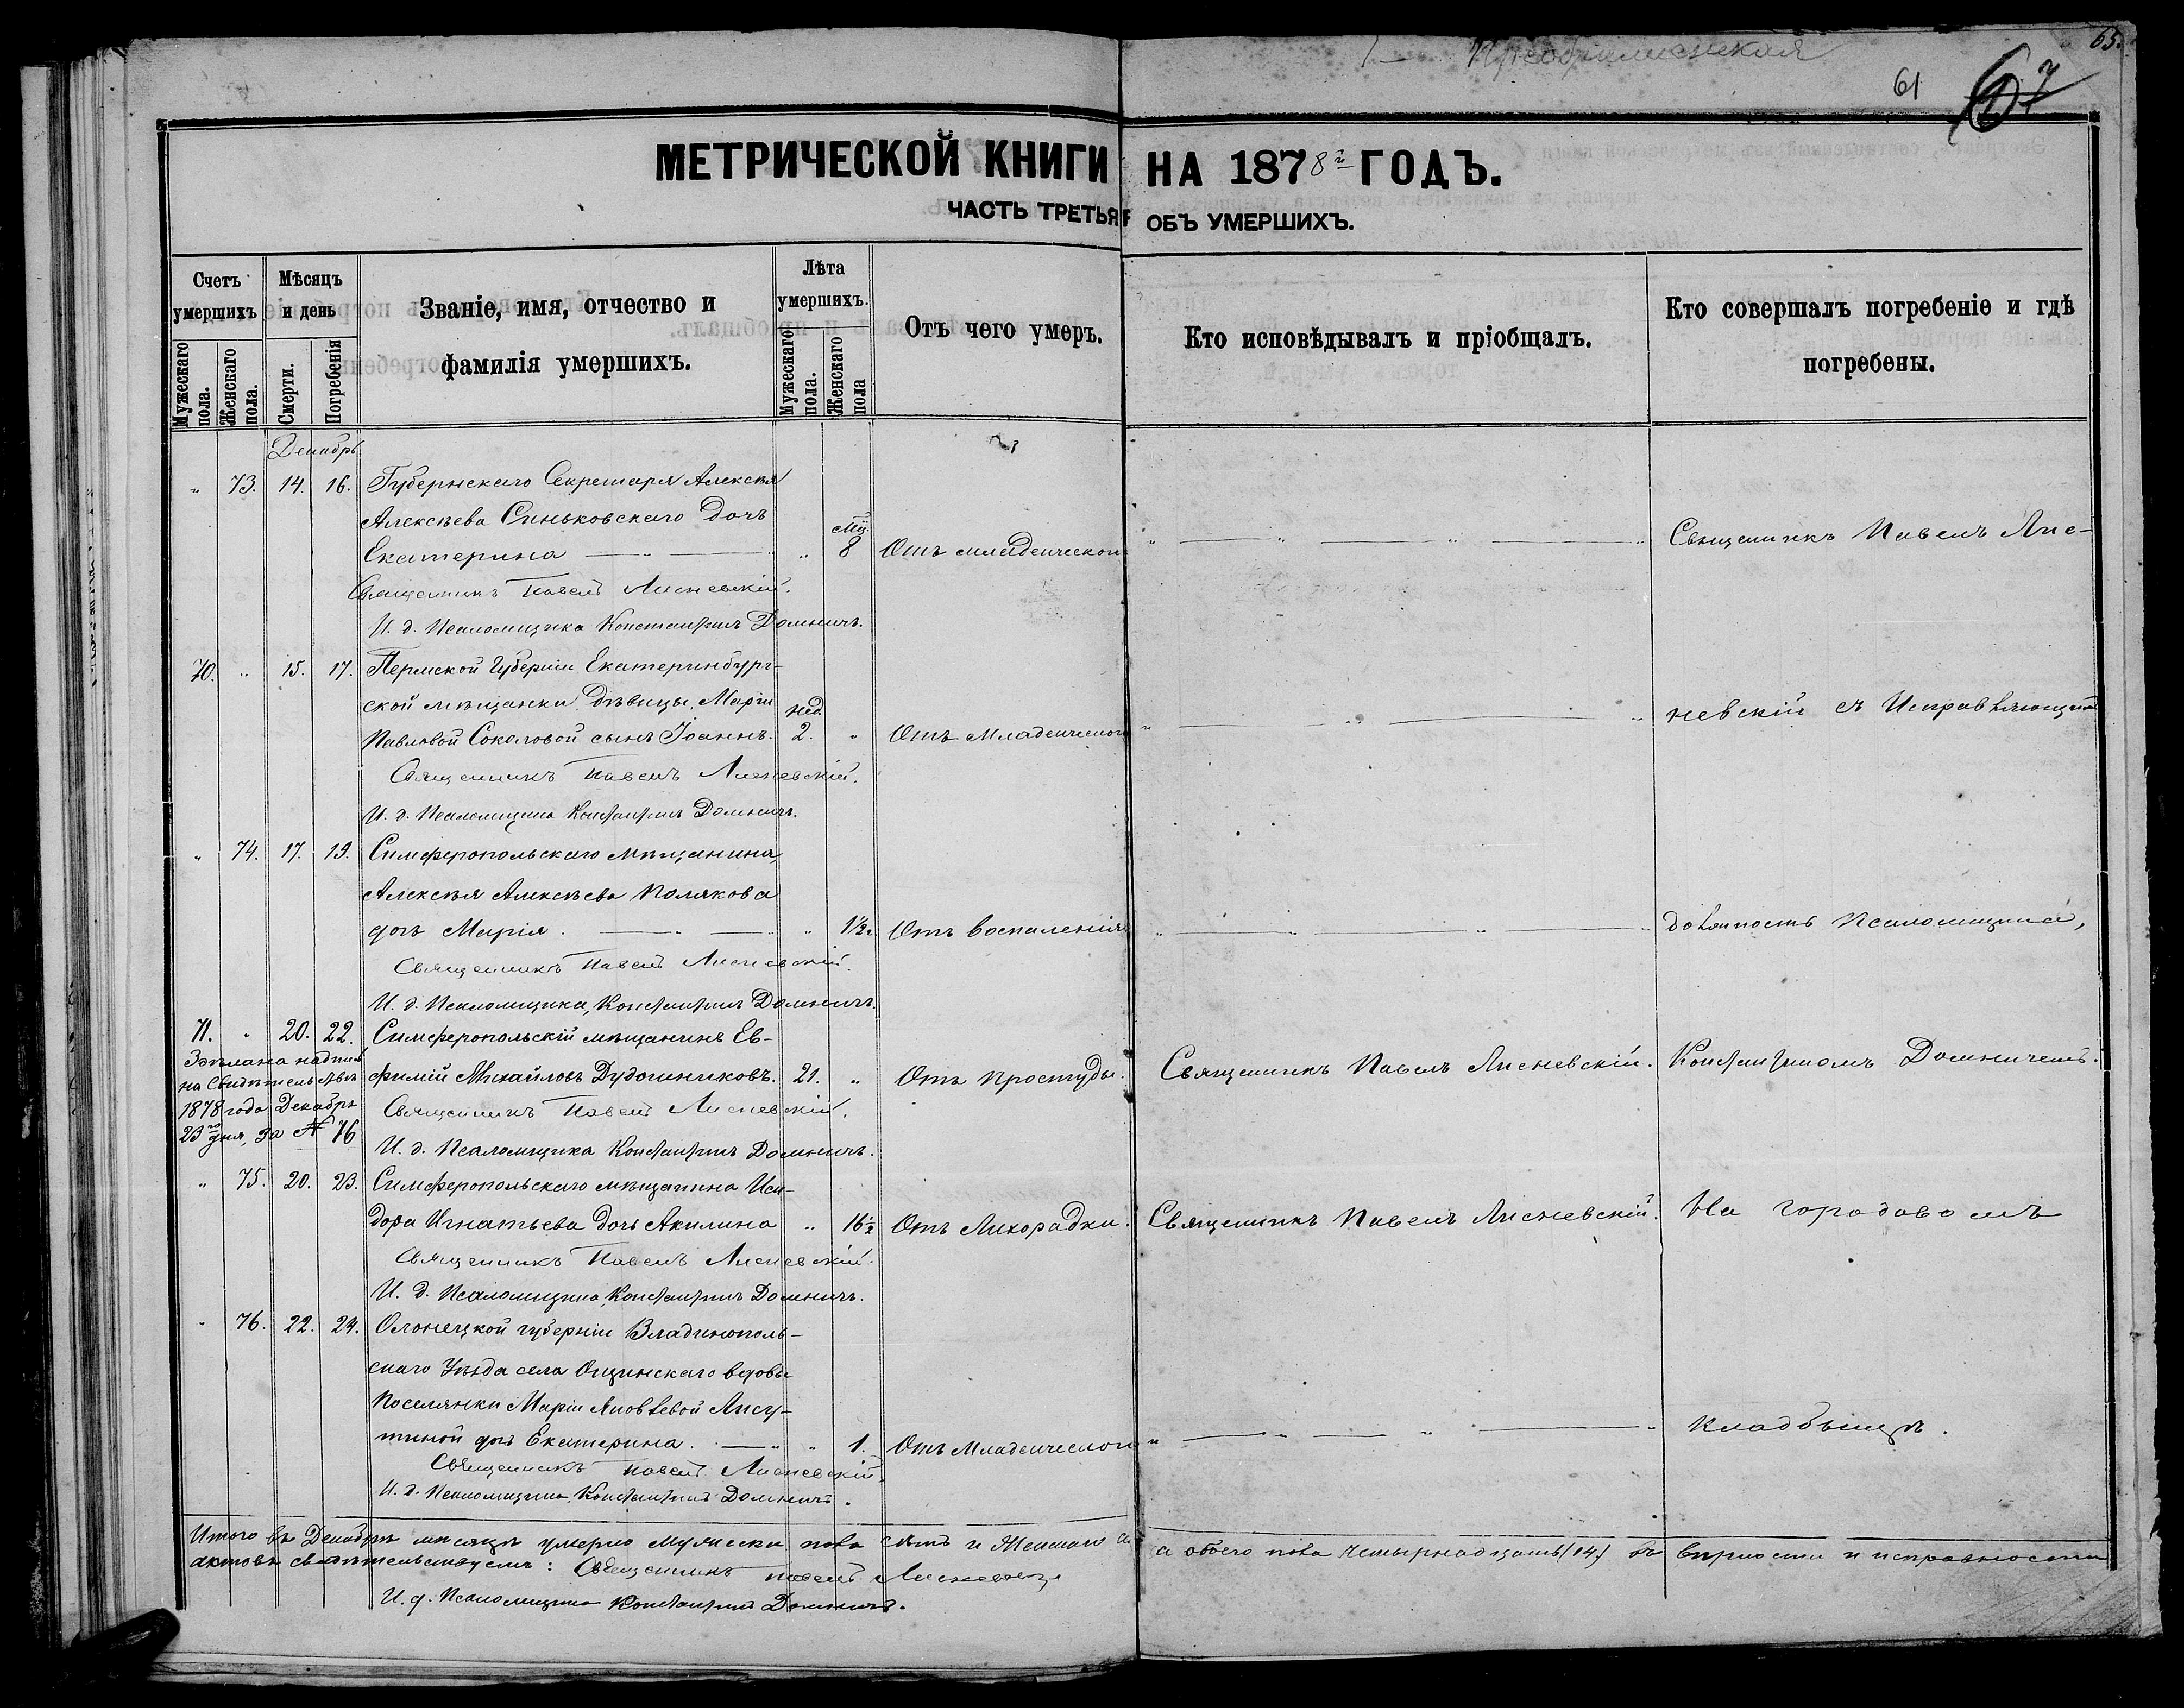 Преображенская
65.
61
67
МЕТРИЧЕСКОЙ КНИГИ НА 1878й ГОДЪ.
ЧАСТЬ ТРЕТЬЯ ОБЪ УМЕРШИХЪ.
Счетъ умершихъ
Мужескаго пола.
Женскаго пола.
Мѣсяцъ и день
Смерти.
Погребенія
Званіе, имя, отчество и фамилія умершихъ.
Лѣта умершихъ.
Мужескаго пола.
Женскаго пола
Отъ чего умеръ.
Кто исповѣдывалъ и пріобщалъ.
Кто совершалъ погребеніе и гдѣ погребены.
Декабрь
" 73. 14. 16. Губернскаго Секретаря Алексѣя
Алексѣева Синьковскаго дочь
Екатерина — " — " Мц. 8 Отъ младенческой " — " — " — " Священникъ Павелъ Лис-
Священникъ Павелъ Лисневскій.
И. д. Псаломщика Константинъ Домничъ.
70. " 15. 17. Пермской Губерніи Екатеринбург-
ской мѣщанки дѣвицы Маріи
Павловой Соколовой сынъ Іоаннъ. нед. 2. " Отъ Младенческой " — " — " невскій съ Исправляющимъ
Священникъ Павелъ Лисневскій.
И. д. Псаломщика Константинъ Домничъ.
" 74. 17. 19. Симферопольскаго Мѣщанина,
Алексѣя Алексѣева Полякова
дочь Марія. — " — " 1½ г. Отъ воспаленія " — " — " — " должность Псаломщика,
Священникъ Павелъ Лисневскій.
И. д. Псаломщика, Константинъ Домничъ.
71. " 20. 22. Симферопольскій мѣщанинъ Ев-
фимій Михайловъ Дудошниковъ. 21. " Отъ Простуды. Священникъ Павелъ Лисневскій. Константиномъ Домничемъ.
Здѣлана надпись
на Свидѣтельствѣ
1878 года Декабря
23го дня, за № 76
Священникъ Павелъ Лисневскій.
И. д. Псаломщика Константинъ Домничъ.
" 75. 20. 23. Симферопольскаго мѣщанина Иси-
дора Игнатьева дочь Акилина " 16½ Отъ Лихорадки. Священникъ Павелъ Лисневскій. На городовомъ
Священникъ Павелъ Лисневскій.
И. д. Псаломщика, Константинъ Домничъ.
" 76. 22. 24. Олонецкой губерніи Владинополь-
скаго Уѣзда села Ощинскаго вдовы
Поселянки Маріи Яковлевой Лису-
тиной дочь Екатерина. — " " 1. Отъ Младенческой " — " — " — " кладбищѣ.
Священникъ Павелъ Лисневскій.
И. д. Псаломщика, Константинъ Домничъ.
Итого въ Декабрѣ мѣсяцѣ умерло мужеска пола и Женскаго а обоего пола четырнадцать (14) въ вѣрности и исправности
актовъ свидѣтельствуемъ: Священникъ Павелъ Лисневскій
И. д. Псаломщика Константинъ Домничъ.